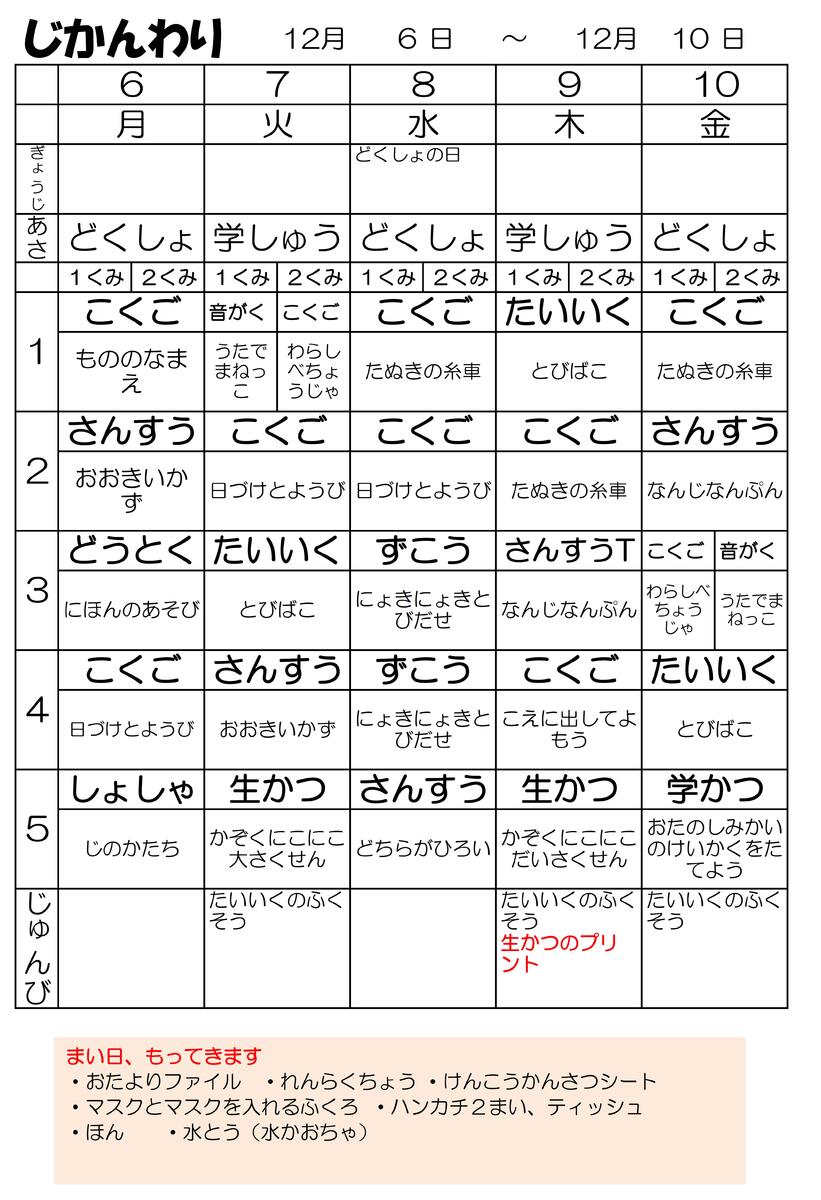 じかんわり 12月 6 日 ～ 12月 10 日
6 7 8 9 10
月 火 水 木 金
ぎょうじ どくしょの日
あさ どくしょ 学しゅう どくしょ 学しゅう どくしょ
1くみ 2くみ 1くみ 2くみ 1くみ 2くみ 1くみ 2くみ 1くみ 2くみ
1 こくご 音がく こくご こくご たいいく こくご
もののなま
え
うたで
まねっ
こ
わらし
べちょ
うじゃ
たぬきの糸車
とびばこ
たぬきの糸車
2 さんすう こくご こくご こくご さんすう
おおきいか
ず
日づけとようび
日づけとようび
たぬきの糸車
なんじなんぷん
3 どうとく たいいく ずこう さんすうT こくご 音がく
にほんのあそび
とびばこ
にょきにょきと
びだせ
なんじなんぷん
わらしべ
ちょう
じゃ
うたでま
ねっこ
4 こくご さんすう ずこう こくご たいいく
日づけとようび
おおきいかず
にょきにょきと
びだせ
こえに出してよ
もう
とびばこ
5 しょしゃ 生かつ さんすう 生かつ 学かつ
じのかたち
かぞくにこにこ
大さくせん
どちらがひろい
かぞくにこにこ
だいさくせん
おたのしみかい
のけいかくをた
てよう
じゅんび
たいいくのふく
そう
たいいくのふく
そう
生かつのプリ
ント
たいいくのふく
そう
まい日、もってきます
・おたよりファイル ・れんらくちょう ・けんこうかんさつシート
・マスクとマスクを入れるふくろ ・ハンカチ２まい、ティッシュ
・ほん ・水とう（水かおちゃ）